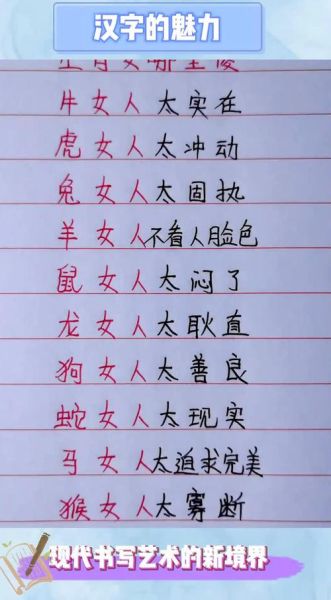 汉字的魅力
牛女人太实在
虎女人太冲动
兔女人太固执
羊女人不看人脸色
鼠女人太闷了
龙女人太耿直
狗女人太善良
蛇女人太现实
马女人太追求完美
猴女人太寡断
现代书写艺术的新境界